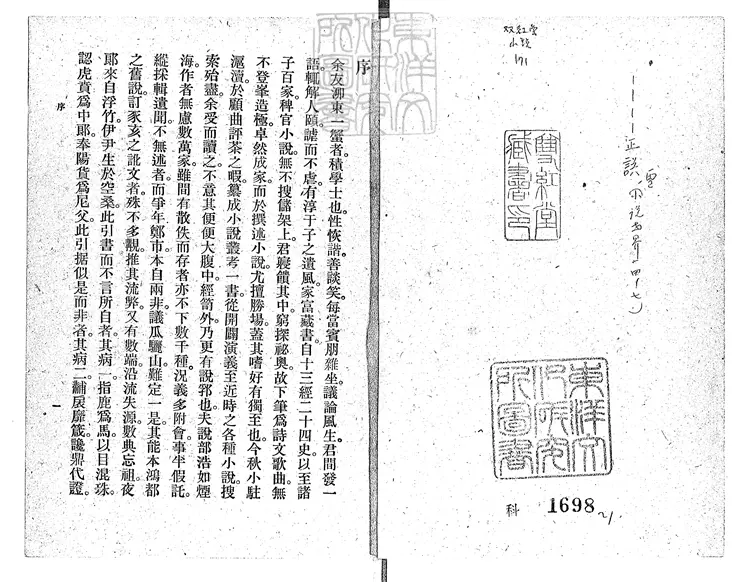 双紅堂
小説
171
雙紅堂
藏書印
東洋文
化研究
所圖書
科 1698
序
余友泖東一蟹者積學士也性恢諧善談笑每當賓朋雜坐議論風生君間發一
語輒解人頤謔而不虐有淳于子之遺風家富藏書自十三經二十四史以至諸
子百家稗官小說無不搜儲架上君寢饋其中窮探祕奧故下筆爲詩文歌曲無
不登峯造極卓然成家而於撰述小說尤擅勝場蓋其嗜好有獨至也今秋小駐
滬瀆於顧曲評茶之暇纂成小說叢考一書從開闢演義至近時之各種小說搜
索殆盡余受而讀之不意其便便大腹中經笥外乃更有說郛也夫說部浩如煙
海作者無慮數萬家雖間有散佚而存者亦不下數千種況義多附會事半假託
縱採輯遺聞不無述者而爭年鄭市本自兩非議瓜驪山難定一是其能本鴻都
之舊說訂豕亥之訛文者殊不多覯推其流弊又有數端沿流失源數典忘祖夜
郞來自浮竹伊尹生於空桑此引書而不言所自者其病一指鹿爲馬以目混珠
認虎賁爲中郞奉陽貨爲尼父此引据似是而非者其病二黼扆廉箴讒鼎代證
序
一